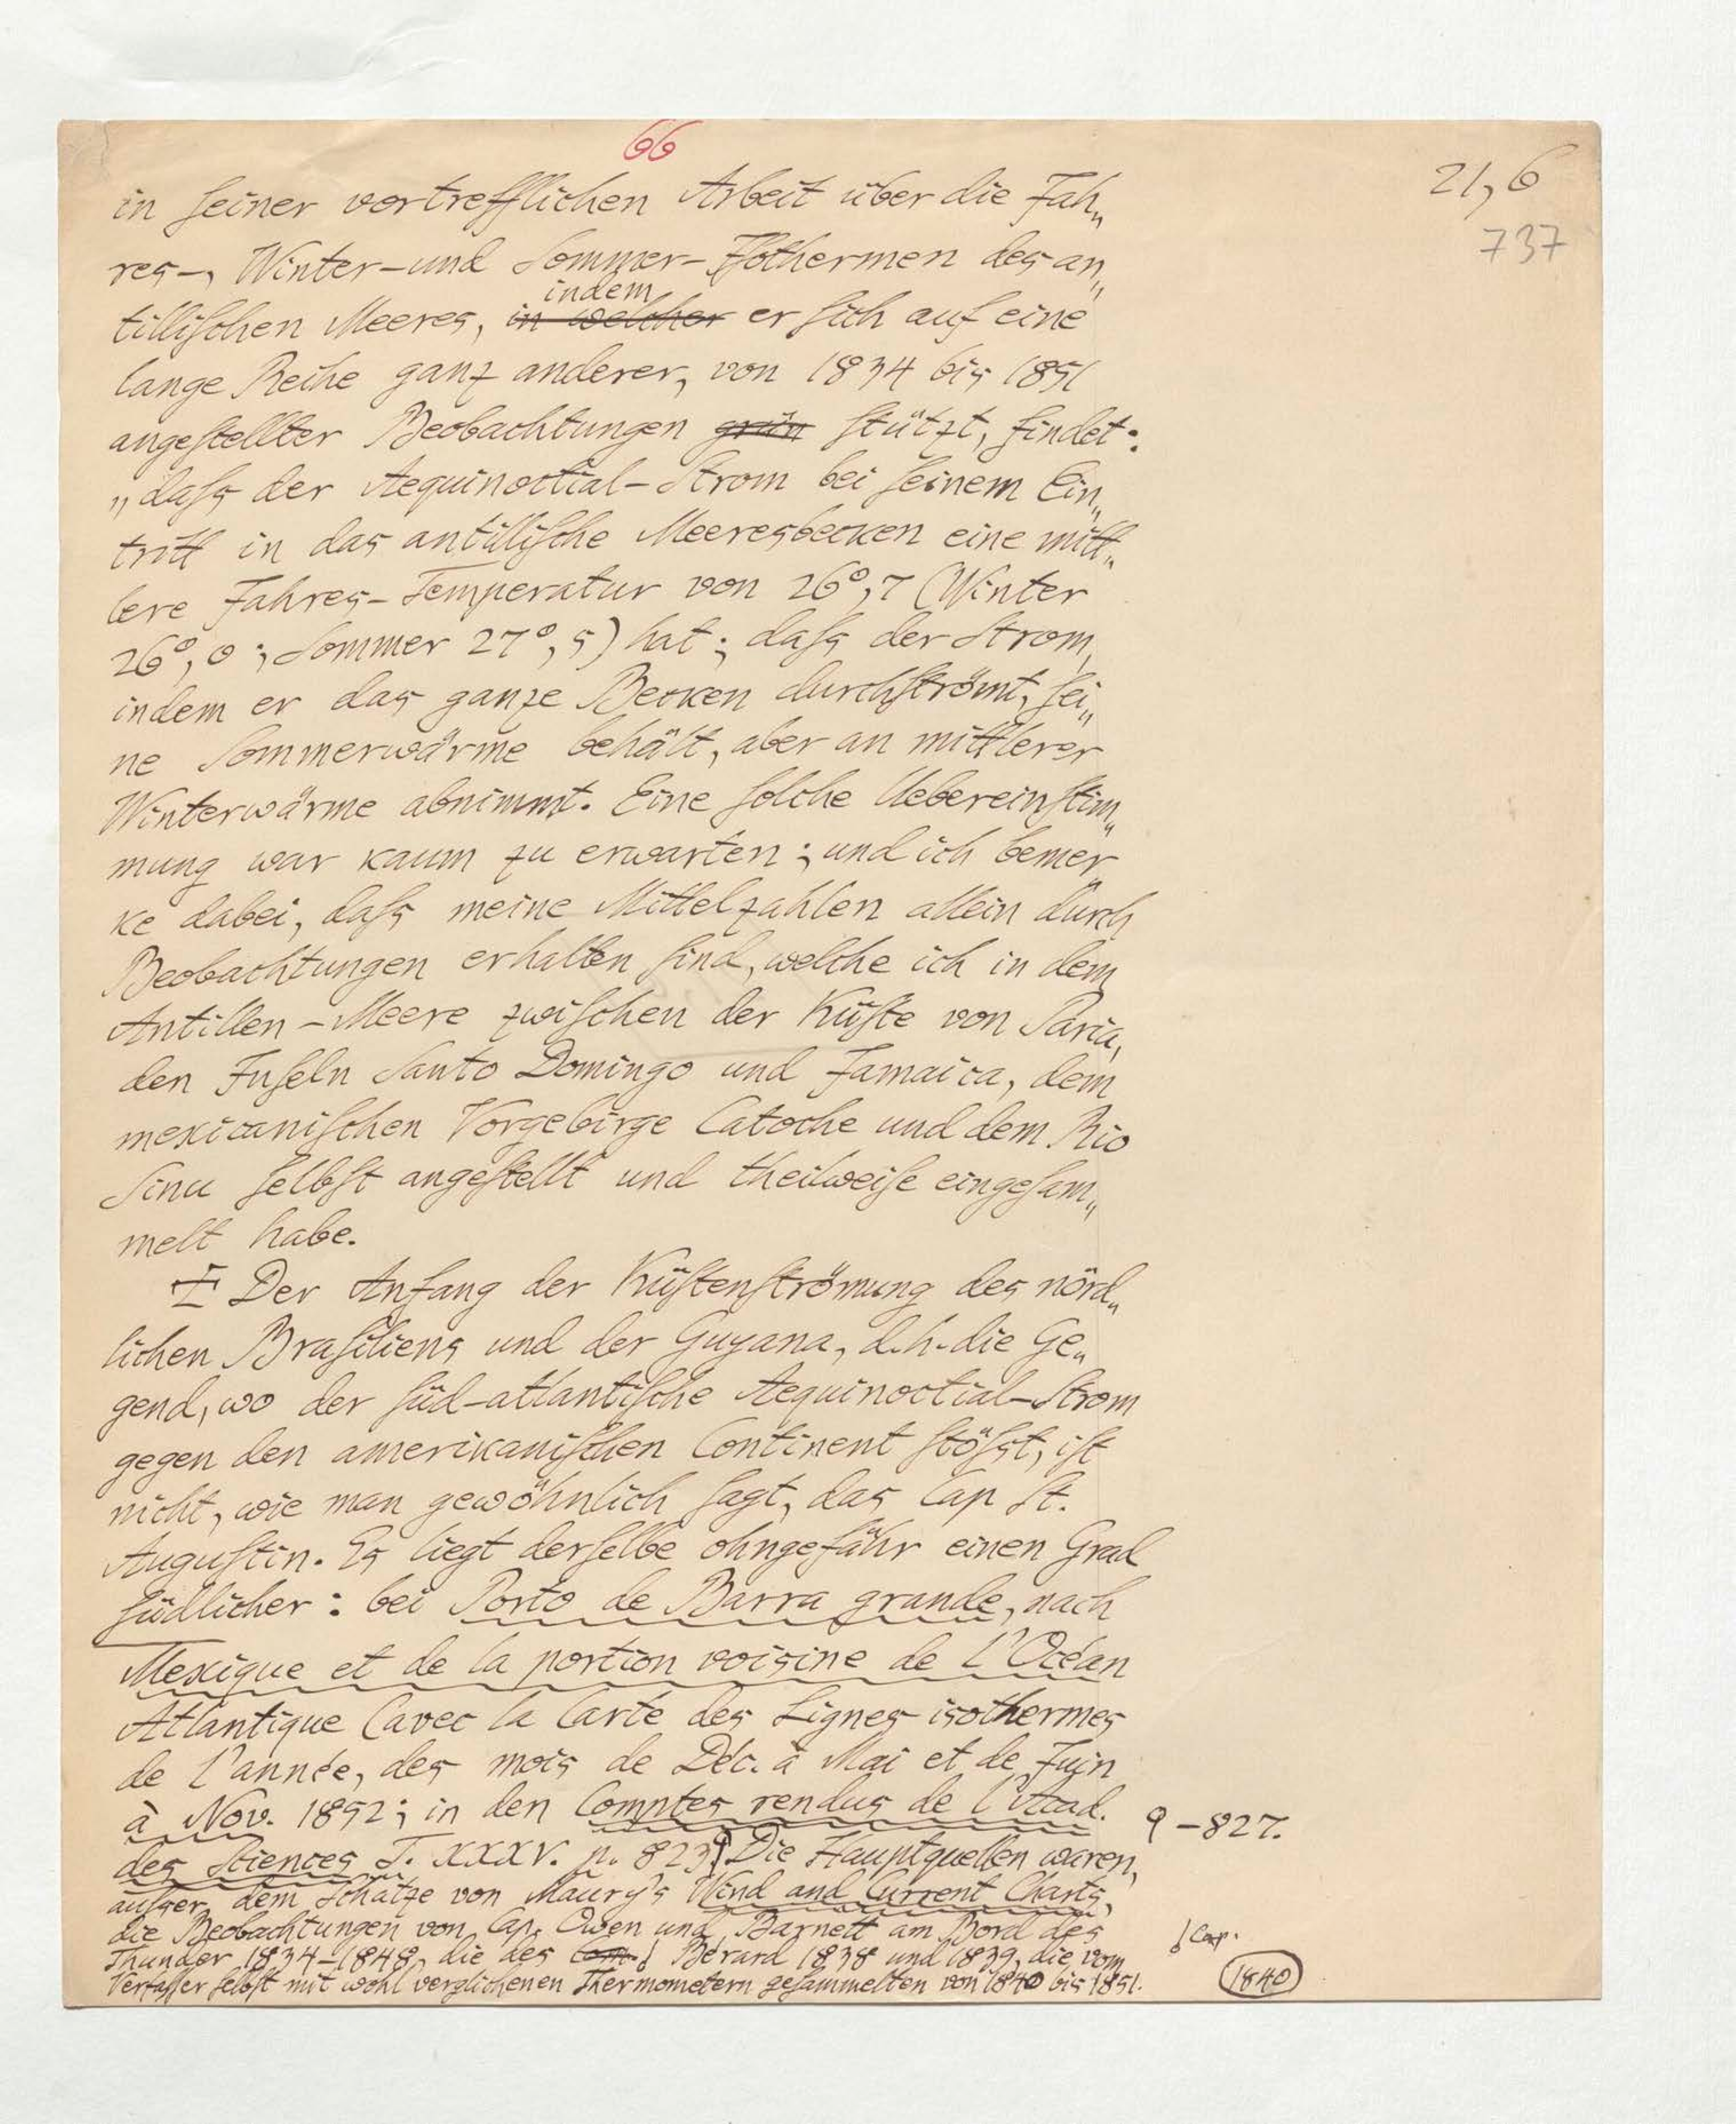 66
21, 6
737
in ſeiner vortrefflichen Arbeit über die Jah„
res-, Winter- und Sommer-Iſothermen des an„
tilliſchen Meeres, in welcher indem er ſich auf eine
lange Reihe ganz anderer, von 1834 bis 1851
angeſtellter Beobachtungen grün ſtützt, findet:
„daſs der Aequinoctial-Strom bei ſeinem Ein„
tritt in das antilliſche Meeresbecken eine mitt„
lere Jahres-Temperatur von 26°,7 (Winter
26°,0; Sommer 27°,5) hat; daſs der Strom,
indem er das ganze Becken durchſtrömt, ſei„
ne Sommerwärme behält, aber an mittlerer
Winterwärme abnimmt. Eine ſolche Uebereinſtim„
mung war kaum zu erwarten; und ich bemer„
ke dabei, daſs meine Mittelzahlen allein durch
Beobachtungen erhalten ſind, welche ich in dem
Antillen-Meere zwiſchen der Küſte von Paria,
den Inſeln Santo Domingo und Jamaica, dem
mexicaniſchen Vorgebirge Catoche und dem Rio
Sinu ſelbſt angeſtellt und theilweiſe eingeſam„
melt habe.
Der Anfang der Küſtenſtrömung des nörd„
lichen Braſiliens und der Guyana, d.h. die Ge„
gend, wo der ſüd-atlantiſche Aequinoctial-Strom
gegen den amerikaniſchen Continent ſtöſst, iſt
nicht, wie man gewöhnlich ſagt, das Cap St.
Auguſtin. Es liegt derſelbe ohngefähr einen Grad
ſüdlicher: bei Porto de Barra grande, nach
Mexique et de la portion voisine de l'Océan
Atlantique (avec la Carte des Lignes isothermes
de l'année, des mois de Déc. à Mai et de Juin
à Nov. 1852; in den Comptes rendus de l'Acad.
9-827.
des Sciences T. XXXV. p. 823 Die Hauptquellen waren,
auſser dem Schatze von Maury's Wind and Current Charts,
die Beobachtungen von Cap. Owen und Barnett am Bord des
Thunder 1834-1848, die des Bérard 1838 und 1839, die vom
Cap.
Verfaſſer ſelbſt mit wohl verglichenen Thermometern geſammelten von 1840 bis 1851.
1840